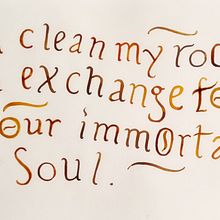 clean my roo
exchange fo
our immorta
Soul.